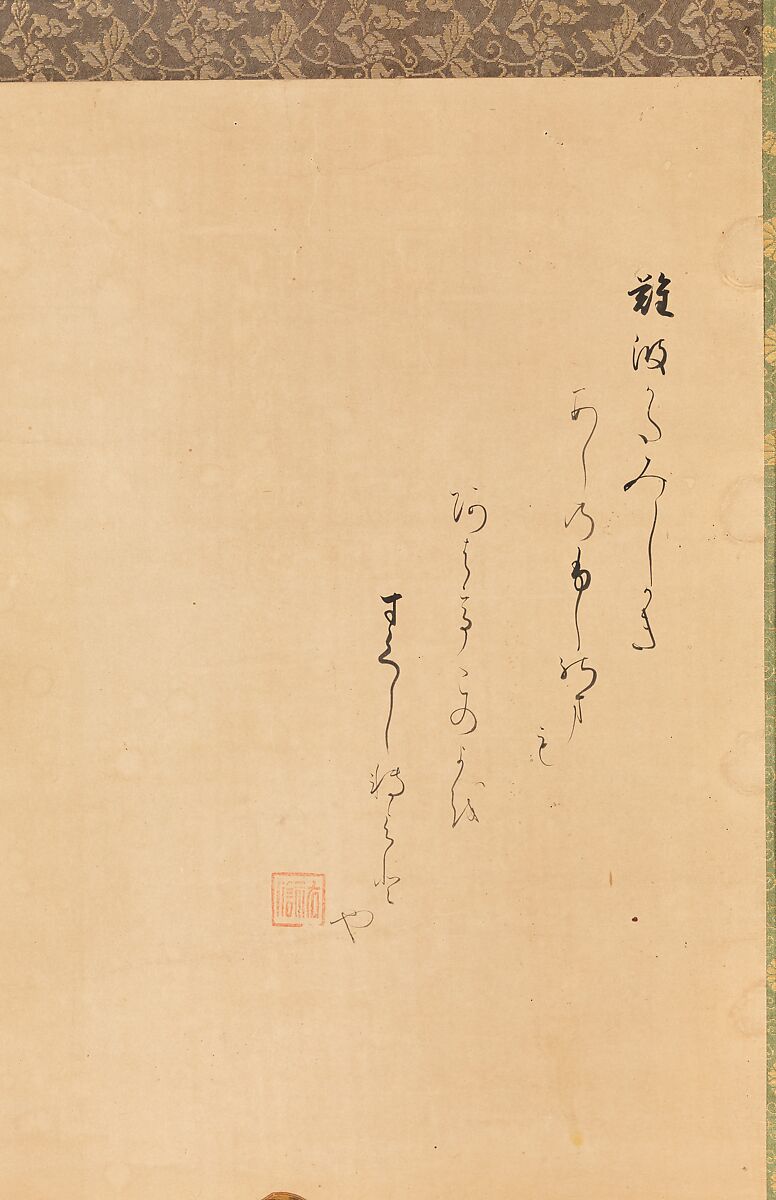 難波かたみしかき
あしのふしのま
も
阿はてこのよを
すくしてよと
や